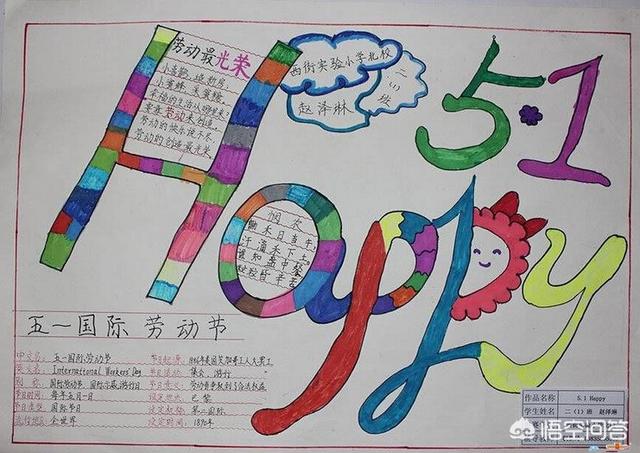 劳动最光荣
小喜鹊,造新房,
小蜜蜂,采蜜糖,
幸福的生活从哪里来?
要靠劳动来创造。
劳动的快乐说不尽,
劳动的创造最光荣。
西街实验小学北校
二(1)班
赵泽琳
5·1
Happy
悯农
锄禾日当午,
汗滴禾下土。
谁知盘中餐,
粒粒皆辛苦
五一国际劳动节
中文名:五一国际劳动节 节日起源:1886年美国芝加哥工人大罢工
英文名:International Workers' Day 节日活动:集会、游行
别称:国际劳动节、国际示威游行日 节日意义:劳动者争取到了合法权益
节日时间:每年五月一日 设定地点:巴黎
节日类型:国际节日 设定机构:第二国际
流行地区:全世界 设定时间:1890年
作品名称 5.1 Happy
学生姓名 二(1)班 赵泽琳
悟空问答